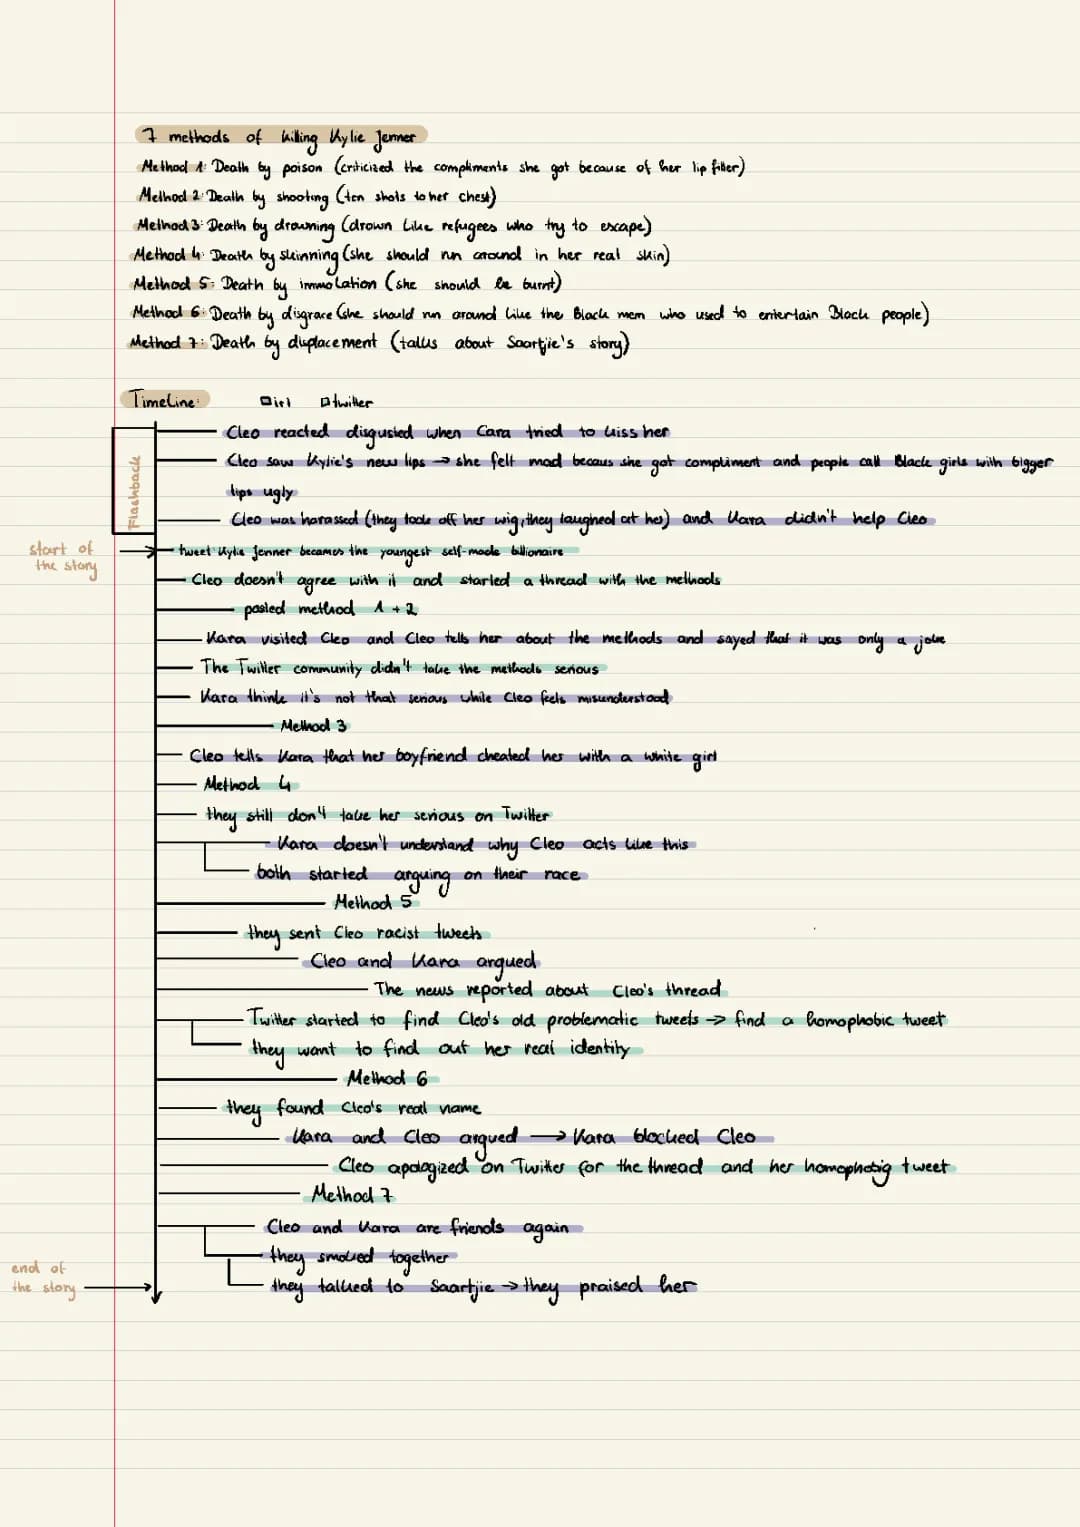 7 methods of killing Kylie Jenner
Method 1: Death by poison (criticized the compliments she got because of her lip filler)
Method 2: Death by shooting (ten shots to her chest)
Method 3: Death by drowning (drown like refugees who try to escape)
Method 4: Death by skinning (she should run around in her real skin)
Method 5: Death by immolation (she should be burnt)
Method 6: Death by disgrace (she should run around like the Black men who used to entertain Black people)
Method 7: Death by displacement (talks about Saartjie's story)
Timeline: irl twitter
Flashback
Cleo reacted disgusted when Cara tried to kiss her
Cleo saw Kylie's new lips → she felt mad becaus she got compliment and people call Black girls with bigger
lips ugly
Cleo was harassed (they took off her wig, they laughed at her) and Kara didn't help Cleo
start of
the story
tweet: Kylie Jenner becames the youngest self-made billionaire
Cleo doesn't agree with it and started a thread with the methods
posted method 1 + 2
Kara visited Cleo and Cleo tells her about the methods and sayed that it was only a joke
The Twitter community didn't take the methods serious
Kara think it's not that serious while Cleo feels misunderstood
Method 3
Cleo tells Kara that her boyfriend cheated her with a white girl
Method 4
they still don't take her serious on Twitter
Kara doesn't understand why Cleo acts like this
both started arguing on their race
Method 5
they sent Cleo racist tweets
Cleo and Kara argued
The news reported about Cleo's thread
Twitter started to find Cleo's old problematic tweets → find a homophobic tweet
they want to find out her real identity
Method 6
they found Cleo's real name
Kara and Cleo argued → Kara blocked Cleo
Cleo apologized on Twitter for the thread and her homophobig tweet
Method 7
Cleo and Kara are friends again
they smoked together
end of
the story
they talked to Saartjie → they praised her